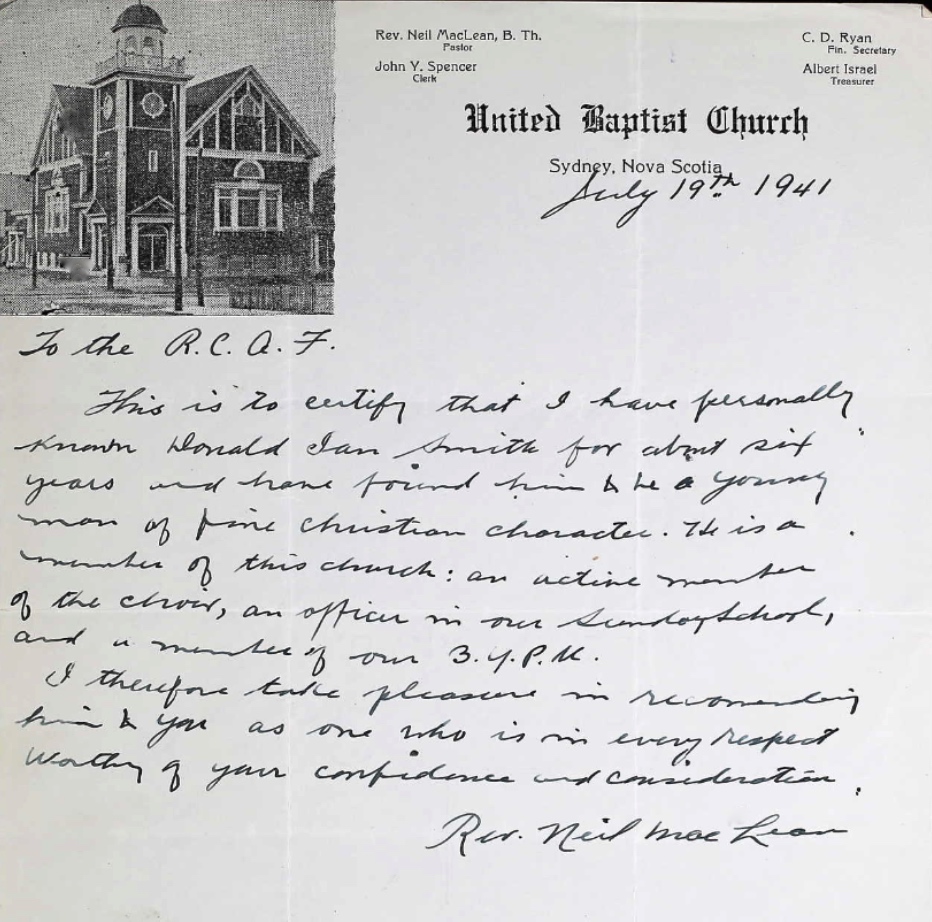 Rev. Neil MacLean, B. Th.
Pastor
John Y. Spencer
Clerk
C. D. Ryan
Fin. Secretary
Albert Israel
Treasurer
United Baptist Church
Sydney, Nova Scotia
July 19th 1941
To the R. C. A. F.
This is to certify that I have personally
known Donald Ian Smith for about six
years and have found him to be a young
man of fine christian character. He is a
member of this church: an active member
of the choir, an officer in our Sunday School,
and a member of our B.Y.P.U.
I therefore take pleasure in recomending
him to you as one who is in every respect
worthy of your confidence and consideration.
Rev. Neil MacLean